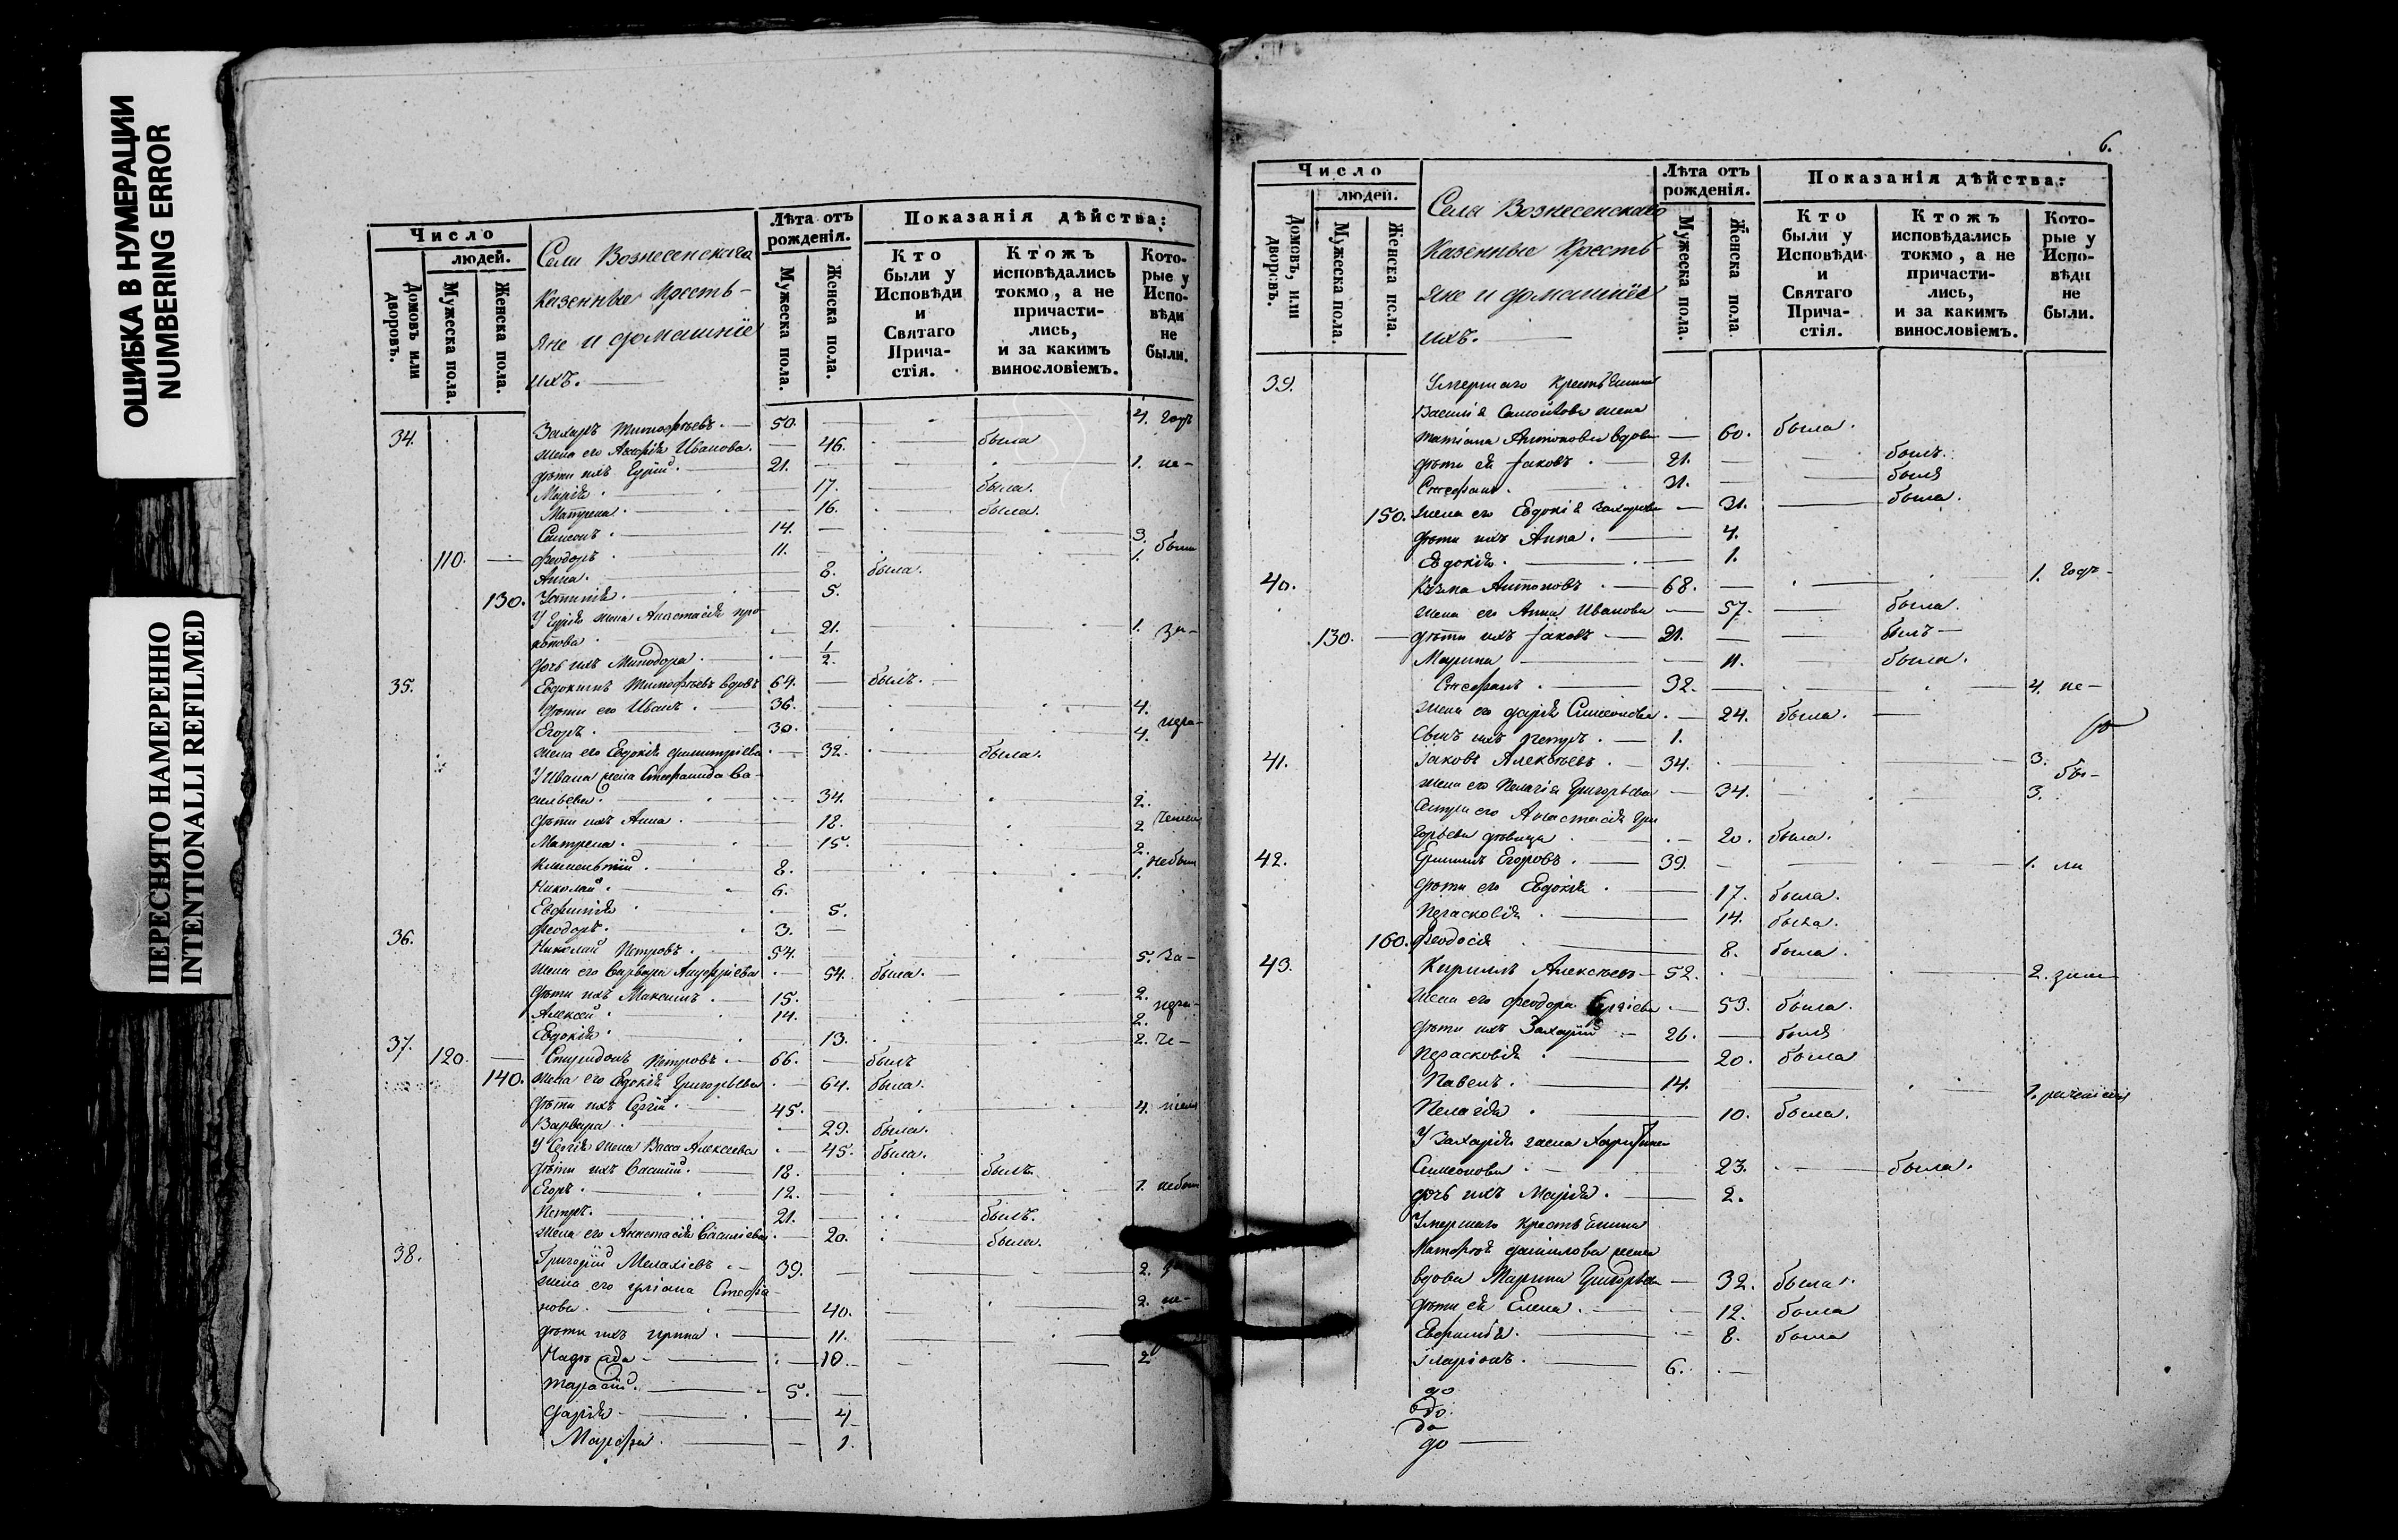 ОШИБКА В НУМЕРАЦИИ
NUMBERING ERROR
ПЕРЕСНЯТО НАМЕРЕННО
INTENTIONALLI REFILMED
Число
людей.
Домовъ или дворовъ.
Мужеска пола.
Женска пола.
Села Вознесенскаго
Казенные Кресть-
яне и домашніе
ихъ.
Лѣта отъ рожденія.
Мужеска пола.
Женска пола.
Показанія дѣйства:
Кто были у Исповѣди и Святаго Прича-стія.
Ктожъ исповѣдались токмо, а не причасти-лись, и за какимъ винословіемъ.
Кото-рые у Испо-вѣди не были.
34. Захаръ Тимофѣевъ. 50. 4. годъ
жена его Иванова. 46. была
дѣти ихъ 21. 1. не-
Марія. 17. была.
Матрена. 16. была.
Самсонъ. 14. 3.
110. Феодоръ. 11. 1. были
Анна. 8. была.
130. Устинія. 5.
жена Анастасія 21. 1.
дочь ихъ Минодора. 1/2.
35. Евдокимъ Тимофѣевъ вдовъ 64. былъ.
дѣти его Иванъ. 36. 4.
Егоръ. 30. 4.
жена его Евдокія Димитріева 32. была.
У Ивана жена Стефанида Ва-
сильева. 34. 2.
дѣти ихъ Анна. 18. 2
Матрена. 15. 2.
Климентій. 8. 1. небыли
Николай. 6.
Евфимія 5.
Феодоръ. 3.
36. Николай Петровъ. 54. 5. за-
жена его Варвара 54. была.
дѣти ихъ Максимъ. 15. 2.
Алексей 14. 2.
Евдокія 13. 2. че-
37. 120. Спиридонъ Петровъ. 66. былъ
140. жена его Евдокія Григорьева 64. была.
дѣти ихъ Сергій. 45. 4.
Варвара. 29. была.
У Сергія жена Васса Алексеева 45. была.
дѣти ихъ Василій. 18. былъ.
Егоръ. 12. 1. небыли
Петръ. 21. былъ.
жена его Анастасія Василіева. 20. была.
38. Григорій 39. 2.
жена его Стефа-
нова. 40. 2. не-
дѣти ихъ Ирина. 11.
Надежда 10. 2
Тарасій. 5.
Дарія. 4
Марфа. 1.
6.
Число
людей.
Домовъ, или дворовъ.
Мужеска пола.
Женска пола.
Села Вознесенскаго
Казенные Кресть-
яне и домашніе
ихъ.
Лѣта отъ рожденія.
Мужеска пола.
Женска пола.
Показанія дѣйства:
Кто были у Исповѣди и Святаго Прича-стія.
Ктожъ исповѣдались токмо, а не причасти-лись, и за какимъ винословіемъ.
Кото-рые у Испо-вѣди не были.
39. Умершаго крестьянина
Василія жена
Татіана Антонова вдова 60. была.
дѣти ея Іаковъ. 21. былъ.
Стефанъ. 31. былъ
150. жена его Евдокія Захарова 31. была.
дѣти ихъ Анна. 4.
Евдокія. 1.
40. Козма Антоновъ. 68. 1. годъ
жена его Анна Иванова 57. была.
130. дѣти ихъ Іаковъ 21. былъ
Марина 11. была.
Стефанъ. 32. 4. не-
жена его Дарія Симеонова. 24. была.
сынъ ихъ Петръ. 1.
41. Іаковъ Алексѣевъ. 34. 3.
жена его Пелагія Григорьева 34. 3. бы-
сестра его Анастасія Гри
горьева дѣвица 20. была.
42. Егоровъ. 39. 1. ли
дѣти его Евдокія 17. была.
Парасковія 14. была.
160. Феодосія 8. была.
43. Кириллъ Алексѣевъ 52. 2.
жена его Феодора 53. была.
дѣти ихъ Захарій 26. былъ
Парасковія 20. была
Павелъ. 14. 1.
Пелагія 10. была.
У Захарія жена
Симеонова 23. была.
дочь ихъ Марія. 2.
Умершаго крестьянина
Данилова жена
вдова Марина Григорьева 32. была.
дѣти ея Елена. 12. была
Евфимія. 8. была
Іларіонъ. 6.
до
до
до